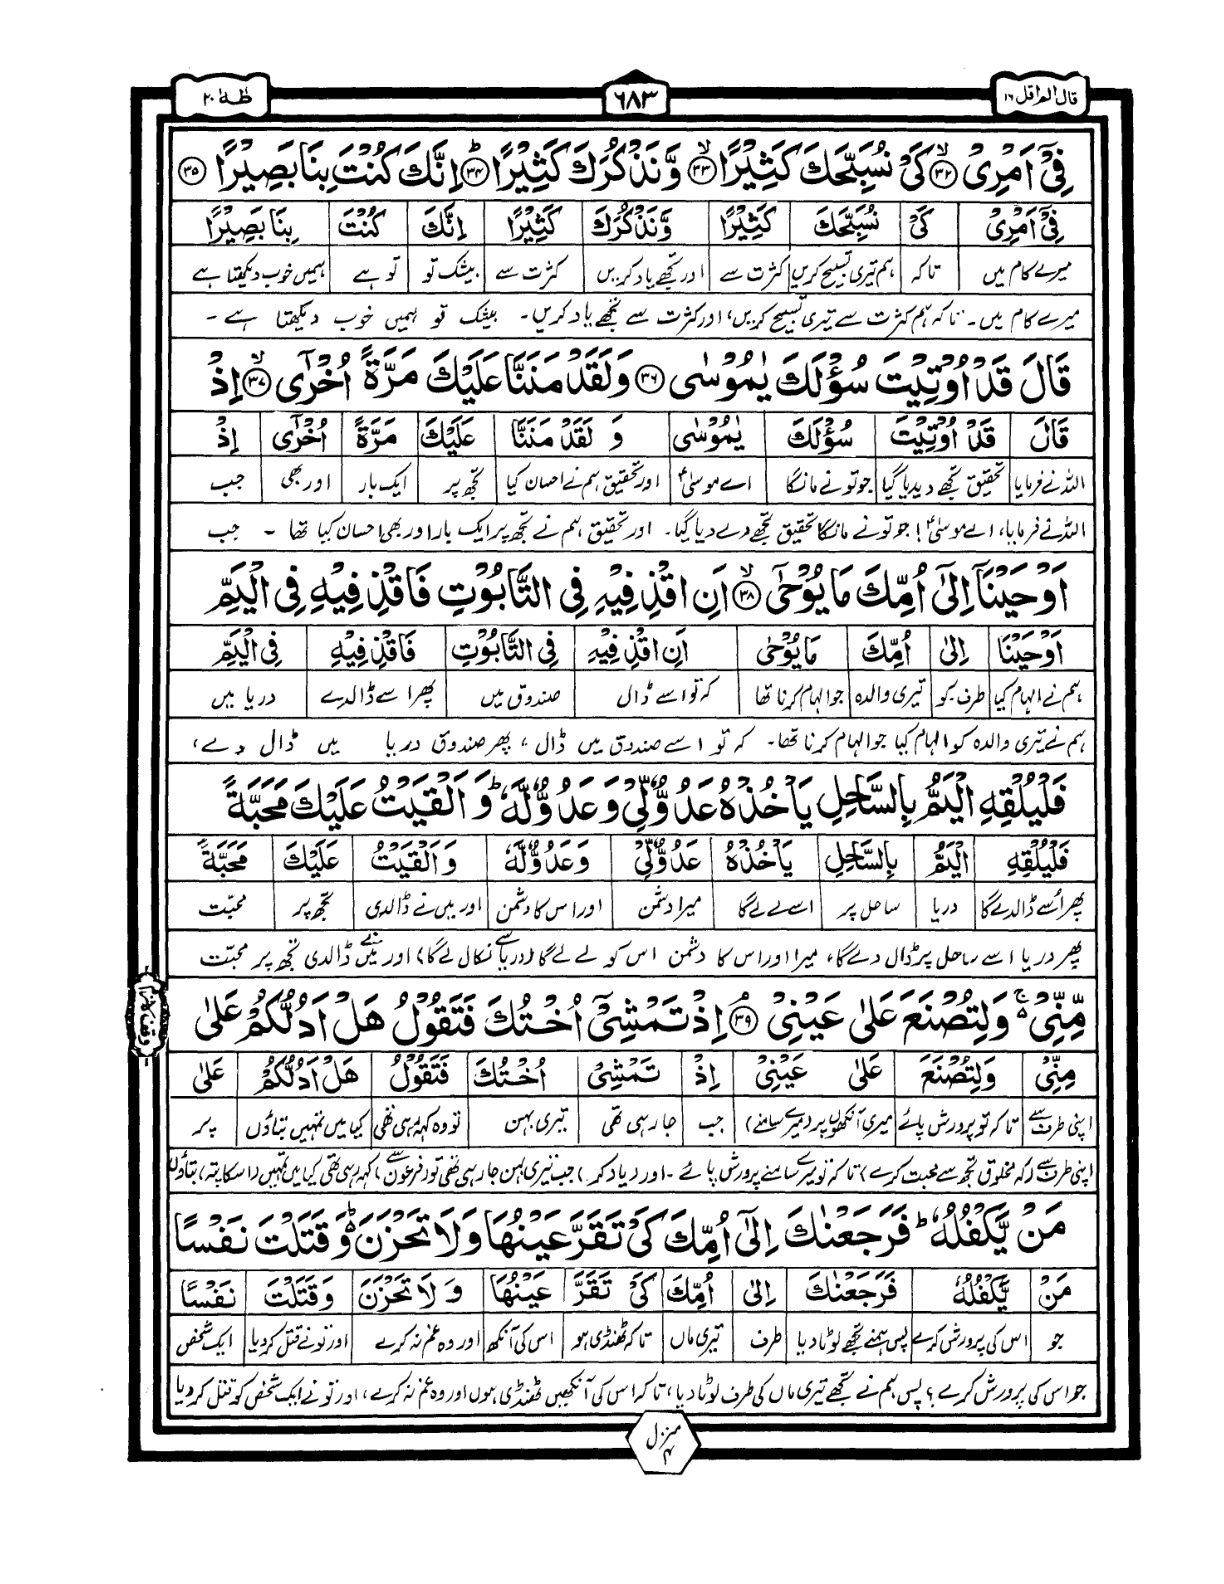 قال الم اقل ١٦
٦٨٣
طٰهٰ ٢٠
فِيْٓ اَمْرِيْ ﴿٣٢﴾ كَيْ نُسَبِّحَكَ كَثِيْرًا ﴿٣٣﴾ وَّنَذْكُرَكَ كَثِيْرًا ﴿٣٤﴾ اِنَّكَ كُنْتَ بِنَا بَصِيْرًا ﴿٣٥﴾
فِيْٓ اَمْرِيْ كَيْ نُسَبِّحَكَ كَثِيْرًا وَّنَذْكُرَكَ كَثِيْرًا اِنَّكَ كُنْتَ بِنَا بَصِيْرًا
میرے کام میں تاکہ ہم تیری تسبیح کریں کثرت سے اور تجھے یاد کریں کثرت سے بیشک تو تو ہے ہمیں خوب دیکھتا ہے
میرے کام میں۔ تاکہ ہم کثرت سے تیری تسبیح کریں، اور کثرت سے تجھے یاد کریں۔ بیشک تو ہمیں خوب دیکھتا ہے۔
قَالَ قَدْ اُوْتِيْتَ سُؤْلَكَ يٰمُوْسٰى ﴿٣٦﴾ وَلَقَدْ مَنَنَّا عَلَيْكَ مَرَّةً اُخْرٰٓى ﴿٣٧﴾ اِذْ
قَالَ قَدْ اُوْتِيْتَ سُؤْلَكَ يٰمُوْسٰى وَ لَقَدْ مَنَنَّا عَلَيْكَ مَرَّةً اُخْرٰٓى اِذْ
اللہ نے فرمایا تحقیق تجھے دیدیا گیا جو تو نے مانگا اے موسیٰؑ اور تحقیق ہم نے احسان کیا تجھ پر ایک بار اور بھی جب
اللہ نے فرمایا، اے موسیٰؑ! جو تو نے مانگا تحقیق تجھے دے دیا گیا۔ اور تحقیق ہم نے تجھ پر ایک بار اور بھی احسان کیا تھا ۔ جب
اَوْحَيْنَآ اِلٰٓى اُمِّكَ مَا يُوْحٰٓى ﴿٣٨﴾ اَنِ اقْذِفِيْهِ فِي التَّابُوْتِ فَاقْذِفِيْهِ فِي الْيَمِّ
اَوْحَيْنَا اِلٰى اُمِّكَ مَا يُوْحٰى اَنِ اقْذِفِيْهِ فِي التَّابُوْتِ فَاقْذِفِيْهِ فِي الْيَمِّ
ہم نے الہام کیا طرف۔کو تیری والدہ جو الہام کرنا تھا کہ تو اسے ڈال صندوق میں پھر اسے ڈالدے دریا میں
ہم نے تیری والدہ کو الہام کیا جو الہام کرنا تھا۔ کہ تو اسے صندوق میں ڈال ، پھر صندوق دریا میں ڈال دے،
فَلْيُلْقِهِ الْيَمُّ بِالسَّاحِلِ يَاْخُذْهُ عَدُوٌّ لِّيْ وَعَدُوٌّ لَّهٗ ؕ وَاَلْقَيْتُ عَلَيْكَ مَحَبَّةً
فَلْيُلْقِهِ الْيَمُّ بِالسَّاحِلِ يَاْخُذْهُ عَدُوٌّ لِّيْ وَعَدُوٌّ لَّهٗ وَاَلْقَيْتُ عَلَيْكَ مَحَبَّةً
پھر اُسے ڈالدے گا دریا ساحل پر اسے لے لے گا میرا دشمن اور اس کا دشمن اور میں نے ڈالدی تجھ پر محبت
پھر دریا اسے ساحل پر ڈال دے گا، میرا اور اس کا دشمن اس کو لے لے گا (دریا سے نکال لے گا) اور میں نے ڈالدی تجھ پر محبّت
مِّنِّيْ ۚ۬ وَلِتُصْنَعَ عَلٰى عَيْنِيْ ﴿٣٩﴾ اِذْ تَمْشِيْٓ اُخْتُكَ فَتَقُوْلُ هَلْ اَدُلُّكُمْ عَلٰى
مِنِّيْ وَلِتُصْنَعَ عَلٰى عَيْنِيْ اِذْ تَمْشِيْٓ اُخْتُكَ فَتَقُوْلُ هَلْ اَدُلُّكُمْ عَلٰى
اپنی طرف سے تاکہ تو پرورش پائے میری آنکھوں پر (میرے سامنے) جب جا رہی تھی تیری بہن تو وہ کہہ رہی تھی کیا میں تمہیں بتاؤں پر
اپنی طرف سے (کہ مخلوق تجھ سے محبت کرے) تاکہ تو میرے سامنے پرورش پائے ۔اور (یاد کر) جب تیری بہن جا رہی تھی تو (فرعون سے) کہہ رہی تھی کیا میں تمہیں (اسکا پتہ) بتاؤں
مَنْ يَّكْفُلُهٗ ؕ فَرَجَعْنٰكَ اِلٰٓى اُمِّكَ كَيْ تَقَرَّ عَيْنُهَا وَلَا تَحْزَنَ ؕ۬ وَقَتَلْتَ نَفْسًا
مَنْ يَّكْفُلُهٗ فَرَجَعْنٰكَ اِلٰى اُمِّكَ كَيْ تَقَرَّ عَيْنُهَا وَلَا تَحْزَنَ وَقَتَلْتَ نَفْسًا
جو اس کی پرورش کرے پس ہم نے تجھے لوٹا دیا طرف تیری ماں تاکہ ٹھنڈی ہو اس کی آنکھ اور وہ غم نہ کرے اور تو نے قتل کر دیا ایک شخص
جو اس کی پرورش کرے؟ پس ہم نے تجھے تیری ماں کی طرف لوٹا دیا، تاکہ اس کی آنکھیں ٹھنڈی ہوں اور وہ غم نہ کرے، اور تو نے ایک شخص کو قتل کر دیا
منزل ۴